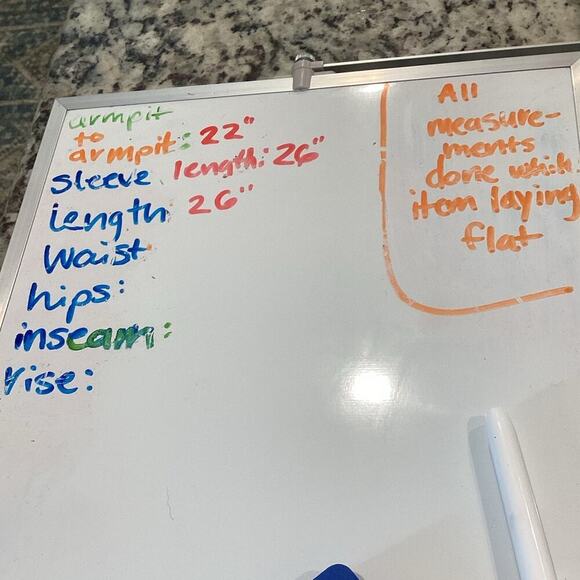 armpit
to
armpit: 22"
sleeve length: 26"
length 26"
Waist
hips:
inseam:
rise:
All
measure-
ments
done which
item laying
flat